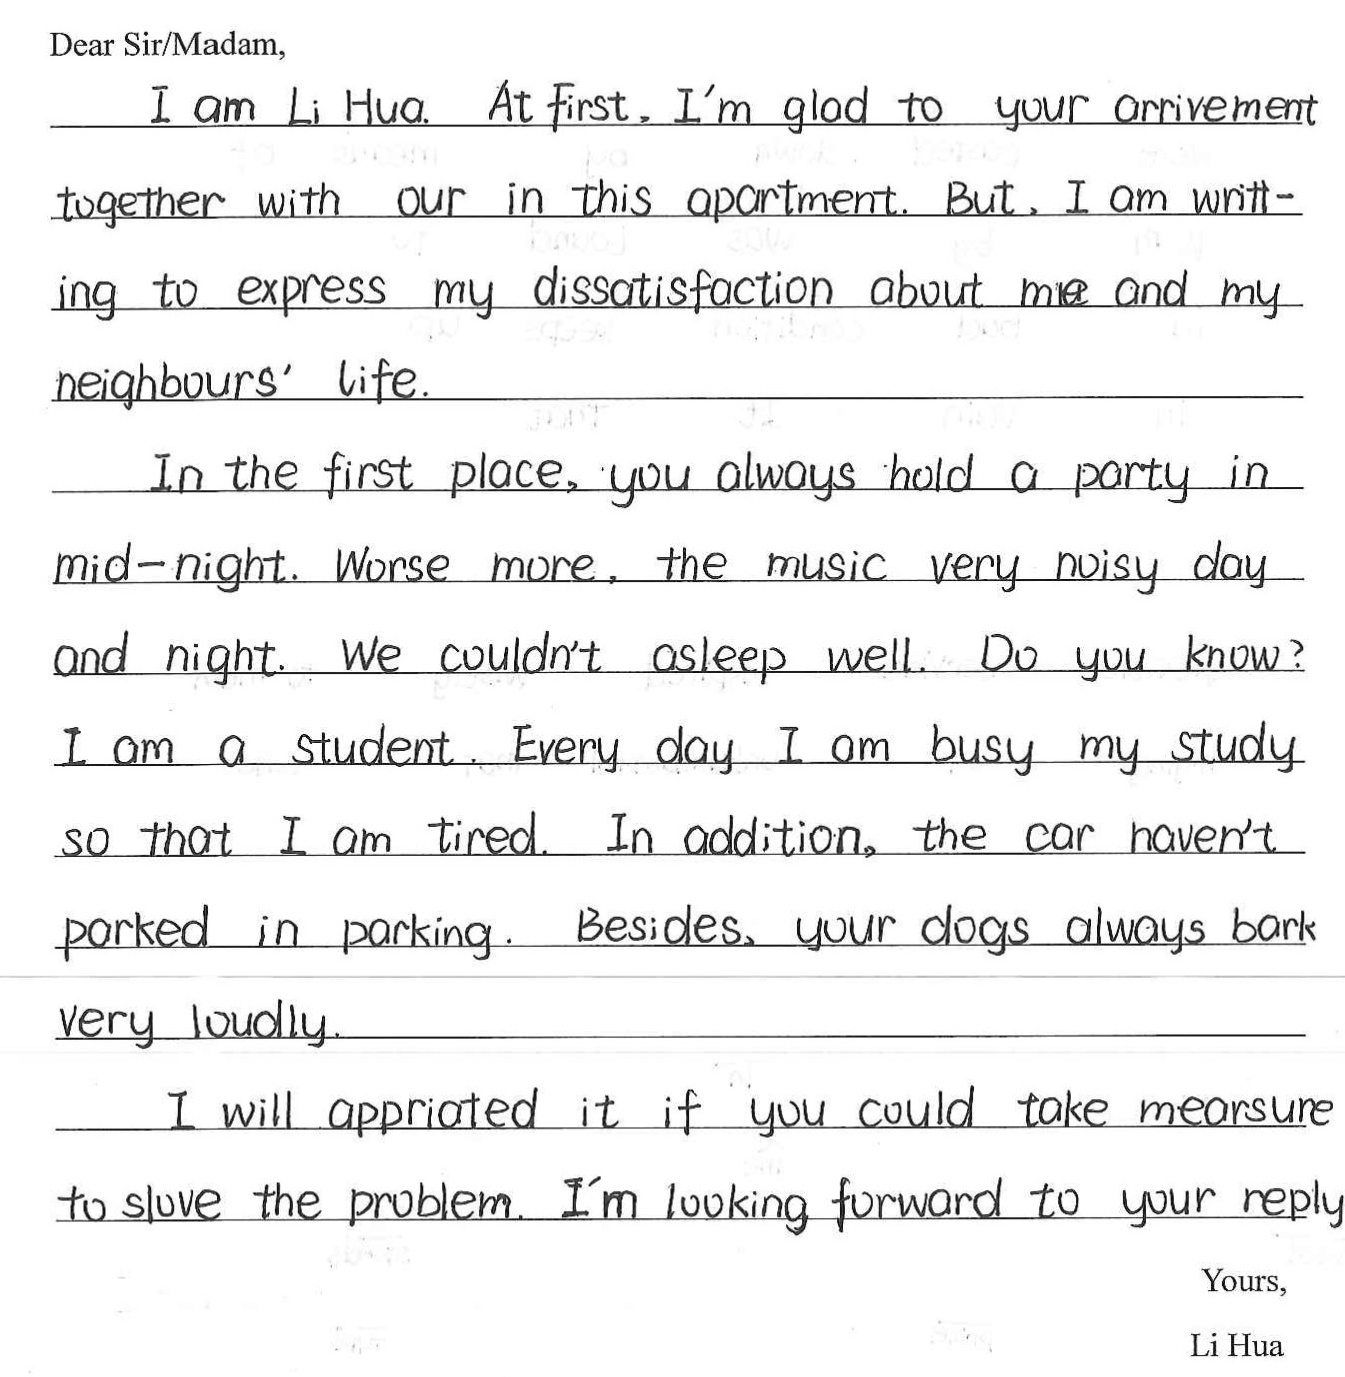 Dear Sir/Madam,
I am Li Hua. At first, I'm glad to your arrivement
together with our in this apartment. But, I am writt-
ing to express my dissatisfaction about me and my
neighbours' life.
In the first place, you always hold a party in
mid-night. Worse more, the music very noisy day
and night. We couldn't asleep well. Do you know?
I am a student. Every day I am busy my study
so that I am tired. In addition, the car haven't
parked in parking. Besides, your dogs always bark
very loudly.
I will appriated it if you could take mearsure
to slove the problem. I'm looking forward to your reply
Yours,
Li Hua